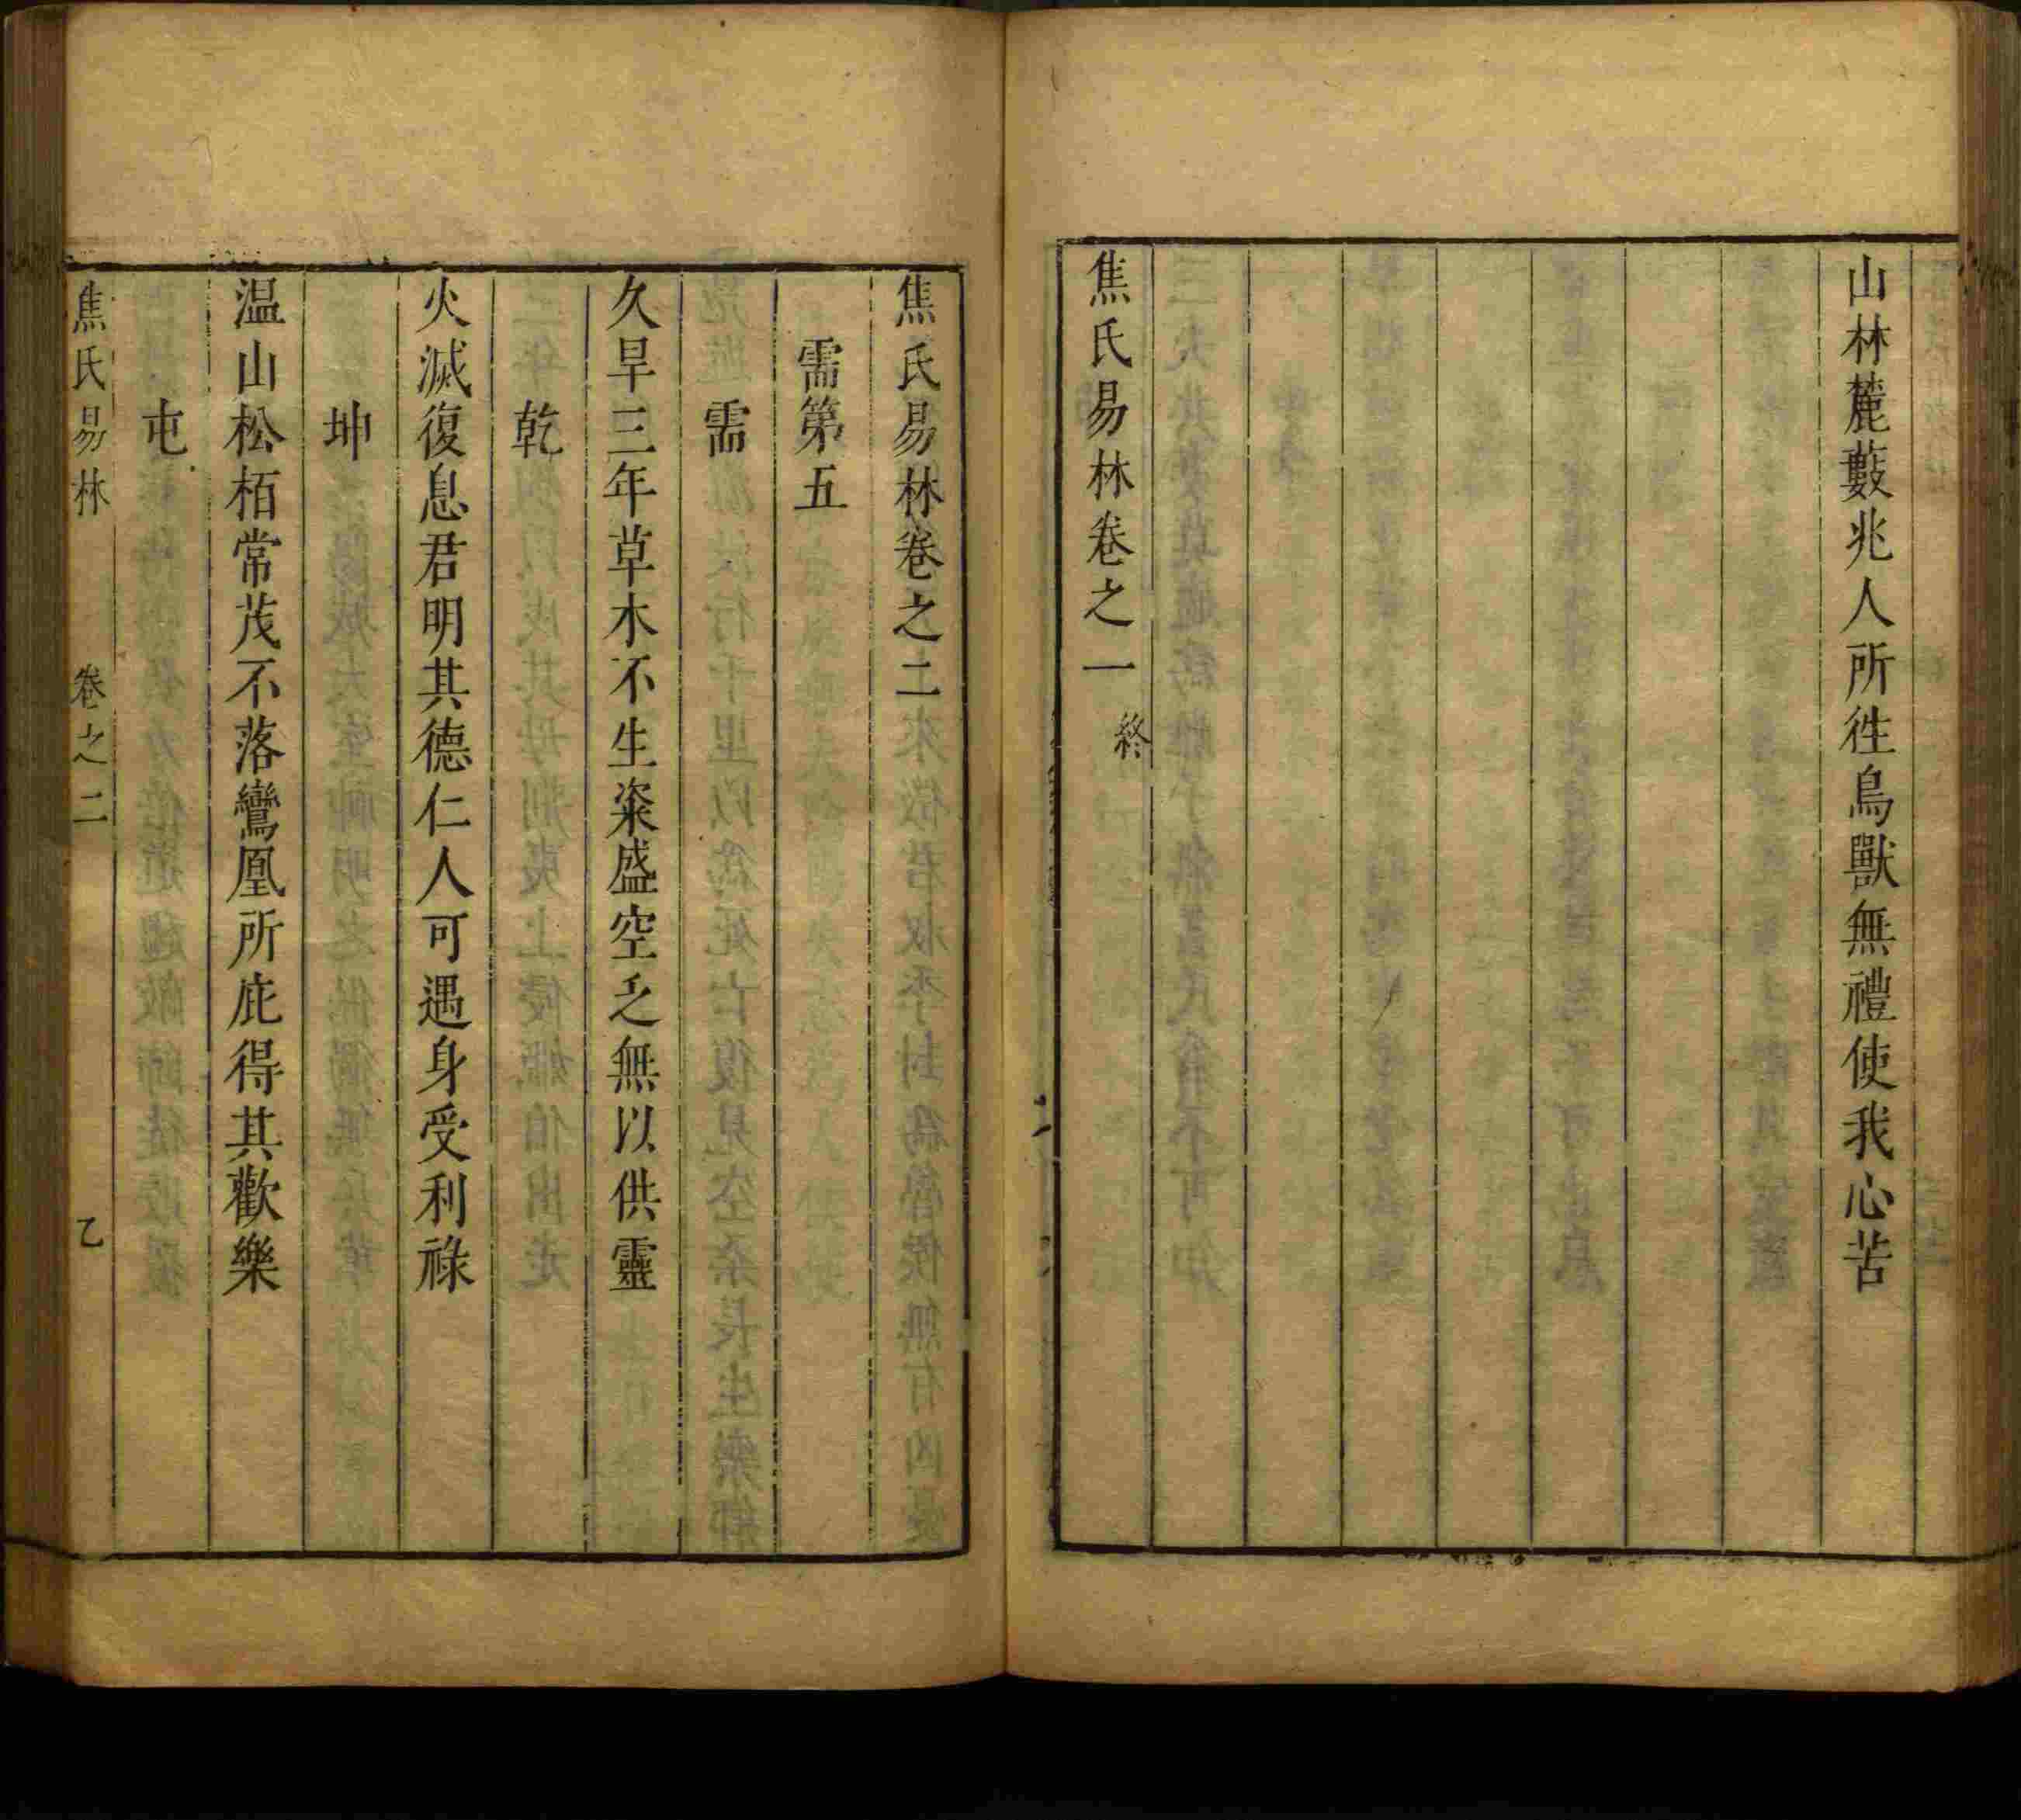 山林麓藪兆人所徃鳥獸無禮使我心苦
焦氏易林卷之一 終
焦氏易林卷之二
需第五
需
久旱三年草木不生粢盛空乏無以供靈
乾
火滅復息君明其德仁人可遇身受利祿
坤
温山松栢常茂不落鸞凰所庇得其歡樂
屯
焦氏易林 卷之二 乙